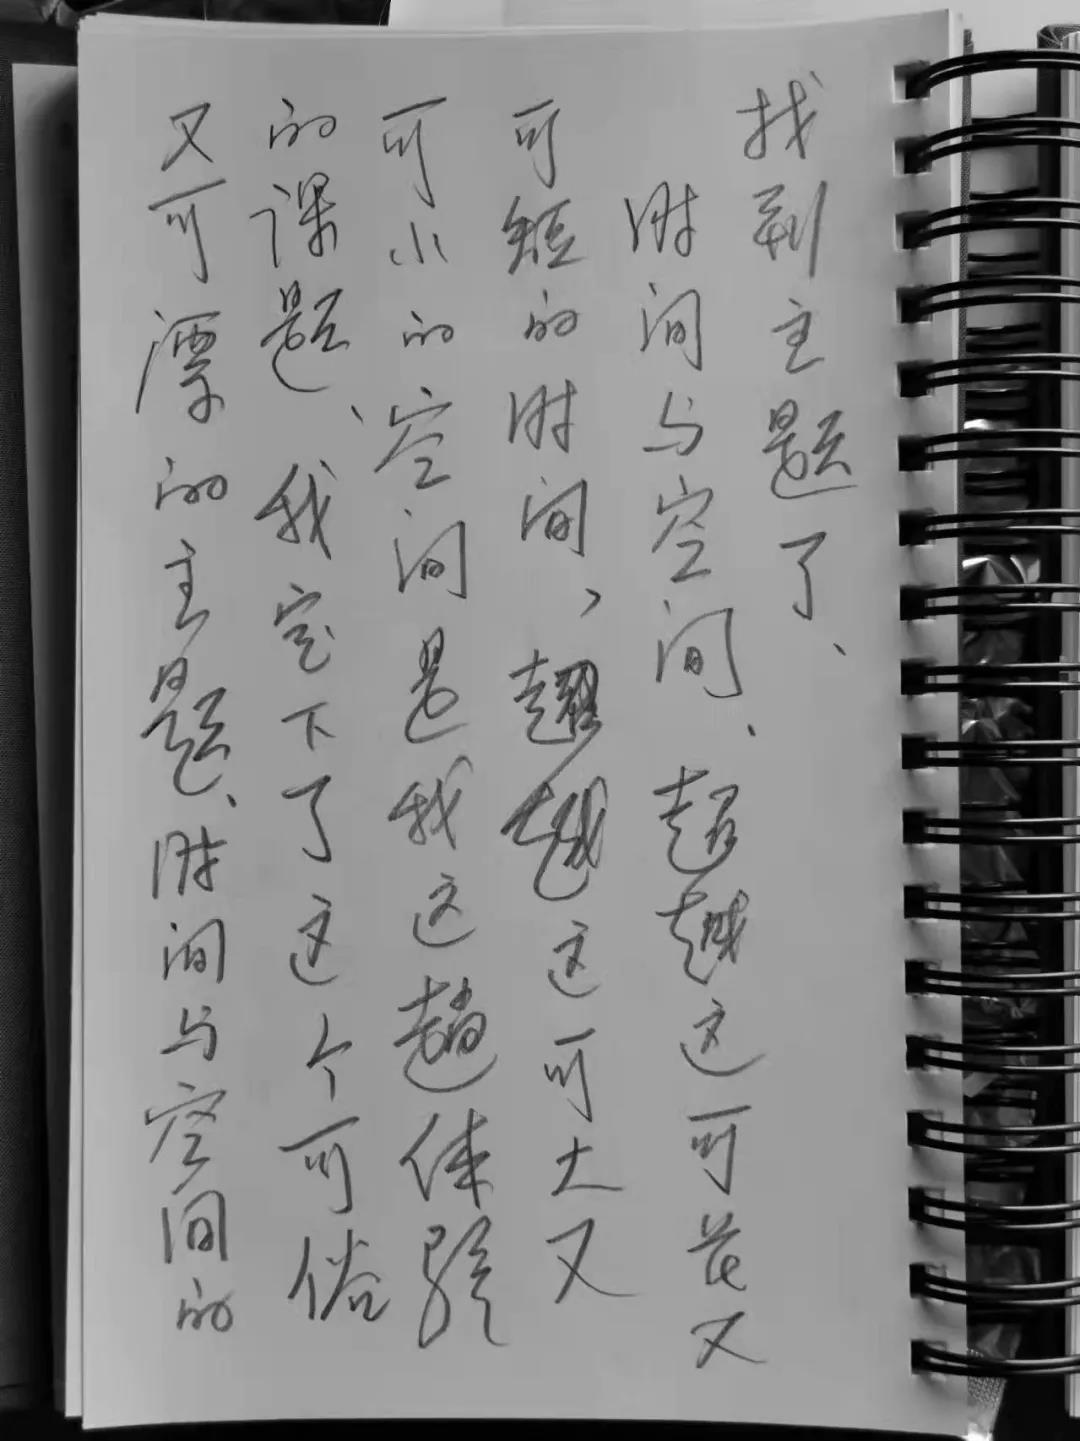 找到主题了、
时间与空间、超越这可又
可短的时间、越这可大又
可小的空间是我这趟体验
的课题、我定下了这个可俗
又可的主题、时间与空间的